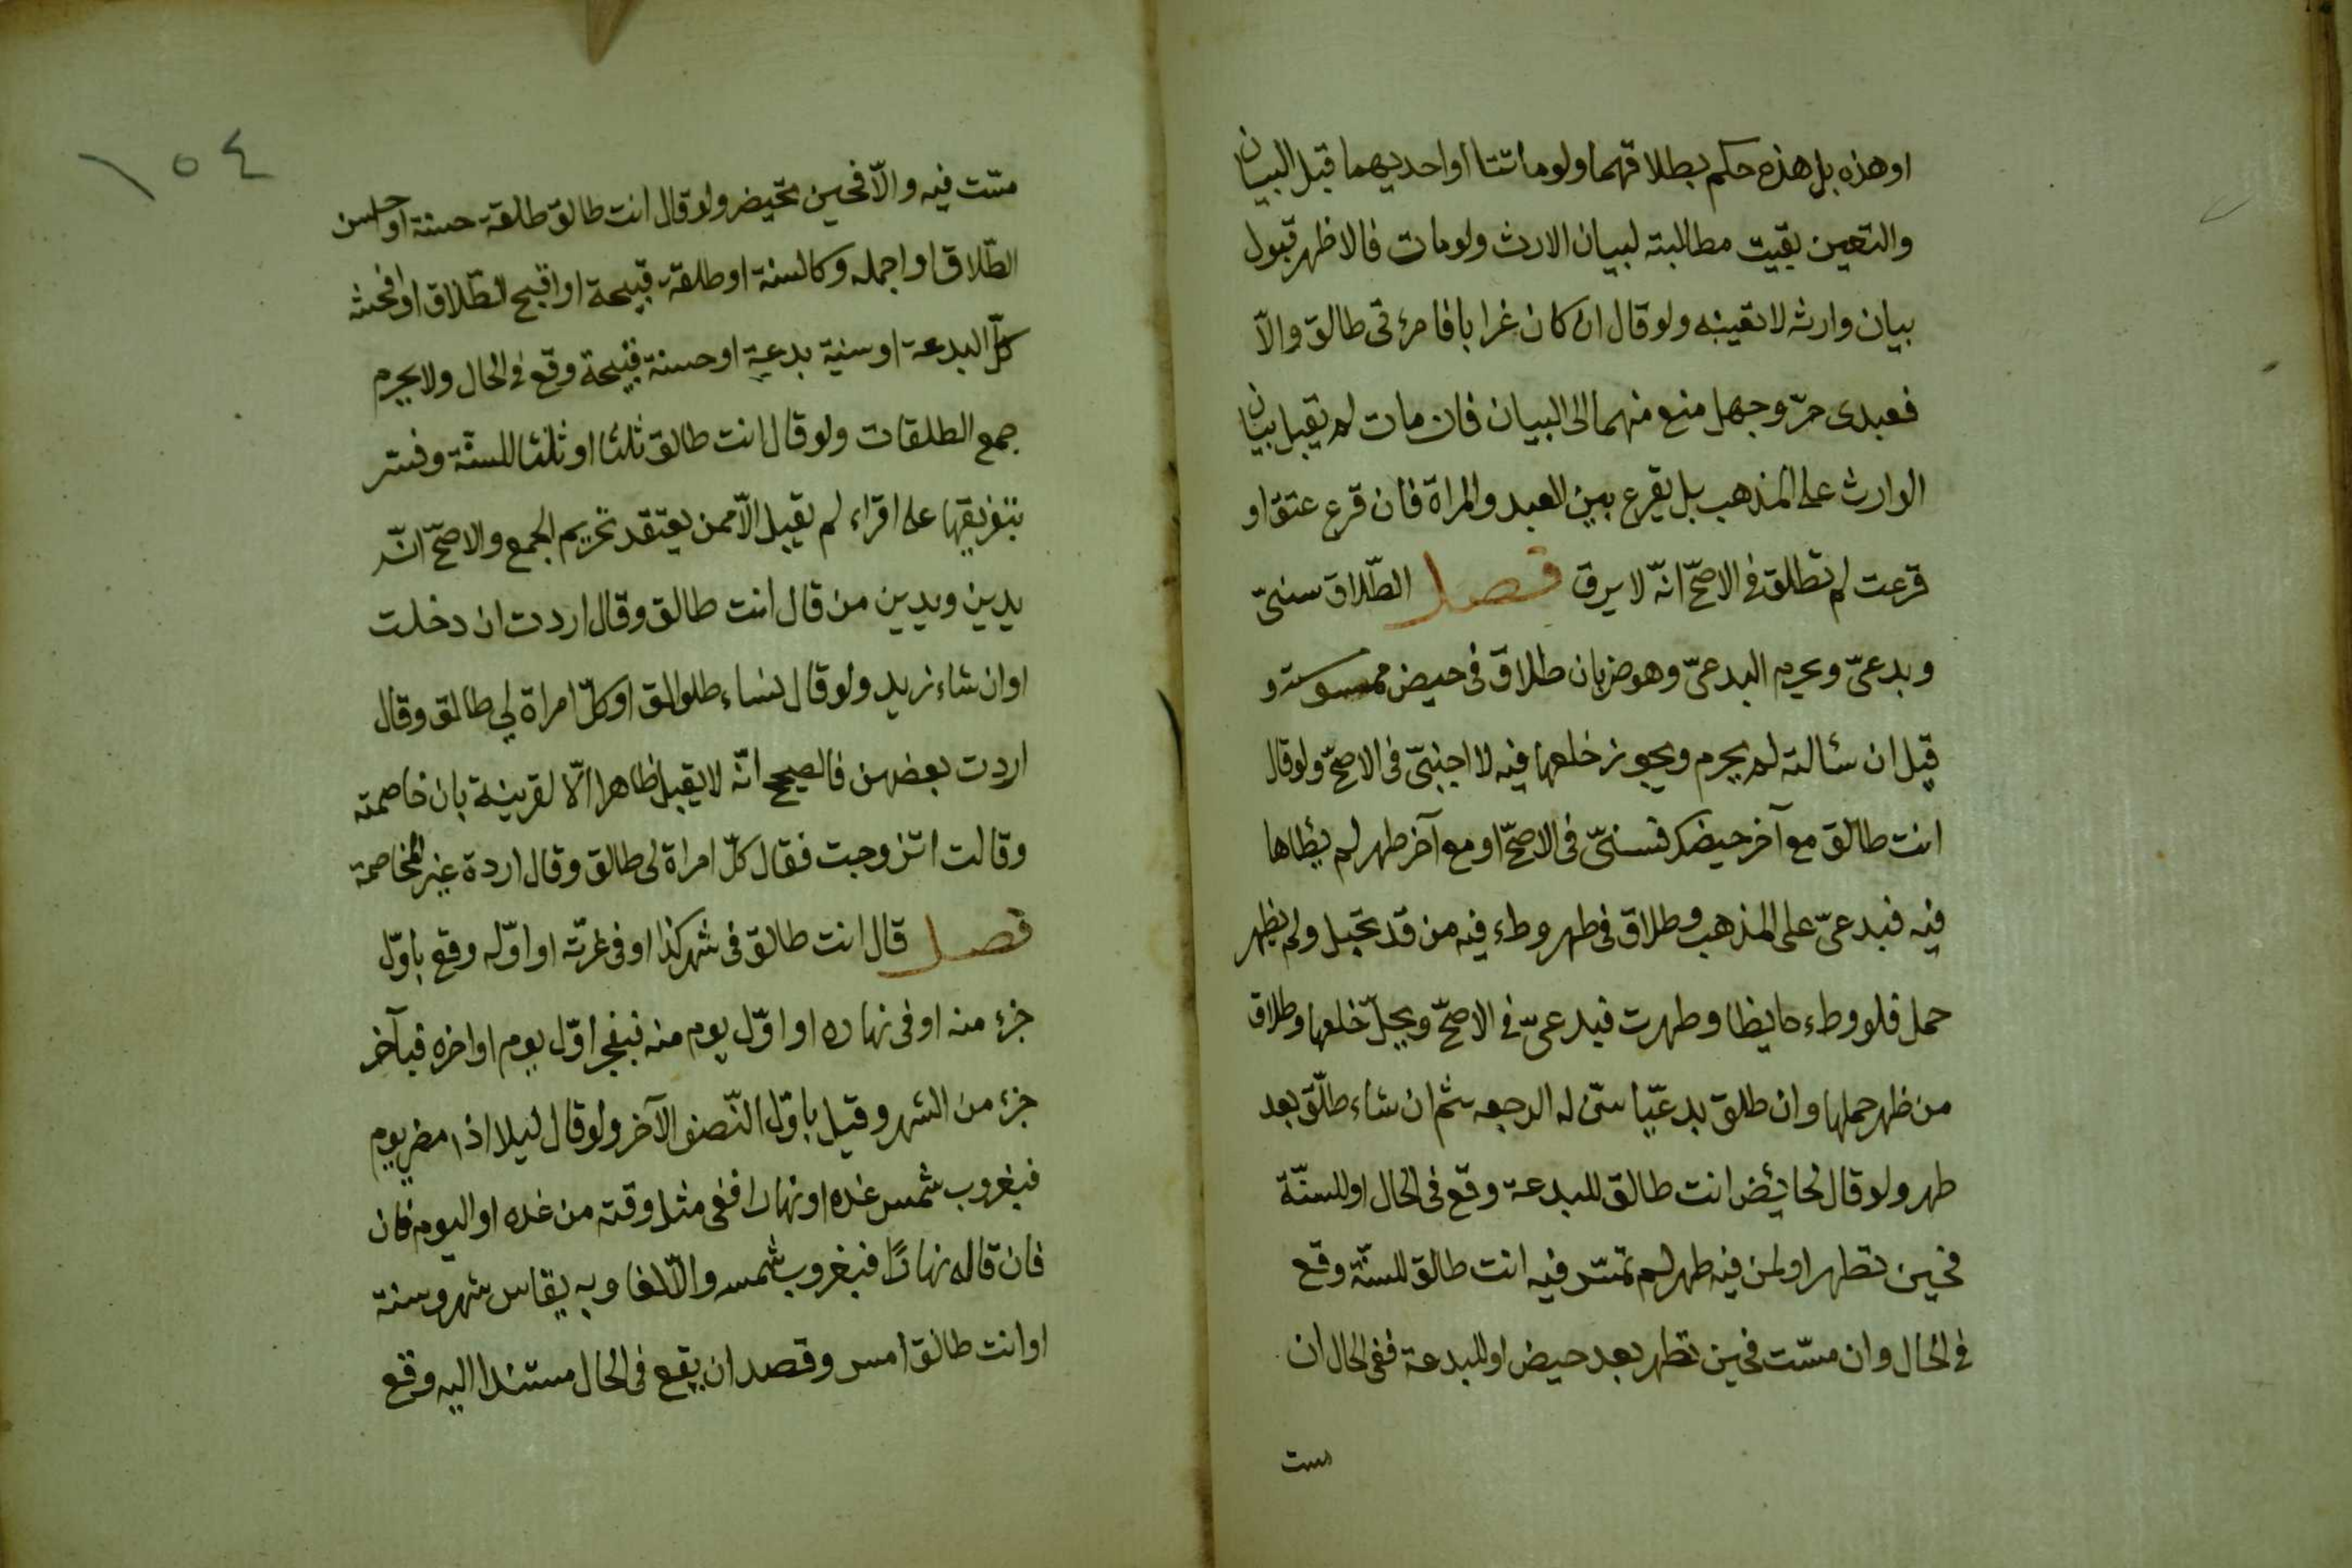 او هذه بل هذه حكم بطلاقهما ولو ماتتا او احديهما قبل البيان
والتعين بقيت مطالبته لبيان الارث ولو مات فالاظهر قبول
بيان وارثه لا تعينه ولو قال ان كان غرابا فامرءتى طالق والّا
فعبدى حرّ وجهل منع منهما الى البيان فان مات لم يقبل بيان
الوارث على المذهب بل يقرع بين العبد والمراة فان قرع عتق او
قرعت لم تطلق فى الاصحّ انّه لا يرق فصل الطّلاق سنىّ
وبدعىّ ويحرم البدعىّ وهو ضربان طلاق فى حيض ممسوسة و
قيل ان سئالته لم يحرم ويجوز خلعها فيه لا اجنبىّ فى الاصحّ ولو قال
انت طالق مع آخر حيضك فسنىّ فى الاصحّ او مع آخر طهر لم يطاها
فيه فبدعىّ على المذهب وطلاق فى طهر وطء فيه من قد تحبل ولم يظهر
حمل فلو وطء حايظا وطهرت فبدعىّ فى الاصحّ ويحلّ خلعها وطلاق
من ظهر حملها وان طلق بدعيّا سنّ له الرجعه ثم ان شاء طلّق بعد
طهر ولو قال لحائض انت طالق للبدعة وقع فى الحال او للسنّة
فحين تطهر او لمن فيه طهر لم تمسّ فيه انت طالق للسنّة وقع
فى الحال وان مسّت فحين تطهر بعد حيض او للبدعة ففى الحال ان
مست
١٥٤
مسّت فيه والّا فحين تحيض ولو قال انت طالق طلقة حسنة او احسن
الطّلاق او اجمله وكالسنة او طلقة قبيحة او اقبح الطّلاق او افحشه
كالبدعة او سنية بدعية او حسنة قبيحة وقع فى الحال ولا يحرم
جمع الطلقات ولو قال انت طالق ثلثا او ثلثا للسنّة وفسّر
بتفريقها على اقراء لم يقبل الّا ممن يعتقد تحريم الجمع والاصحّ انّه
يدين ويدين من قال انت طالق وقال اردت ان دخلت
او ان شاء زيد ولو قال نساء طلوالق او كلّ امراة لى طالق وقال
اردت بعضهن فالصحيح انّه لا يقبل ظاهرا الّا لقرينة بان خاصمته
وقالت اتزوجت فقال كلّ امراة لى طالق وقال اردة غير المخاصمة
فصل قال انت طالق فى شهر كذا او فى غرّته او اوّله وقع باوّل
جزء منه او فى نهاره او اوّل يوم منه فبفجر اوّل يوم او اخره فبآخر
جزء من الشهر وقيل باوّل النّصف الآخر ولو قال ليلا اذا مضى يوم
فبغروب شمس غده او نهارا ففى مثل وقته من غده او اليوم فان
فان قاله نهارًا فبغروب شمسه والّا لغا وبه يقاس شهر وسنة
او انت طالق امس وقصد ان يقع فى الحال مستندا اليه وقع